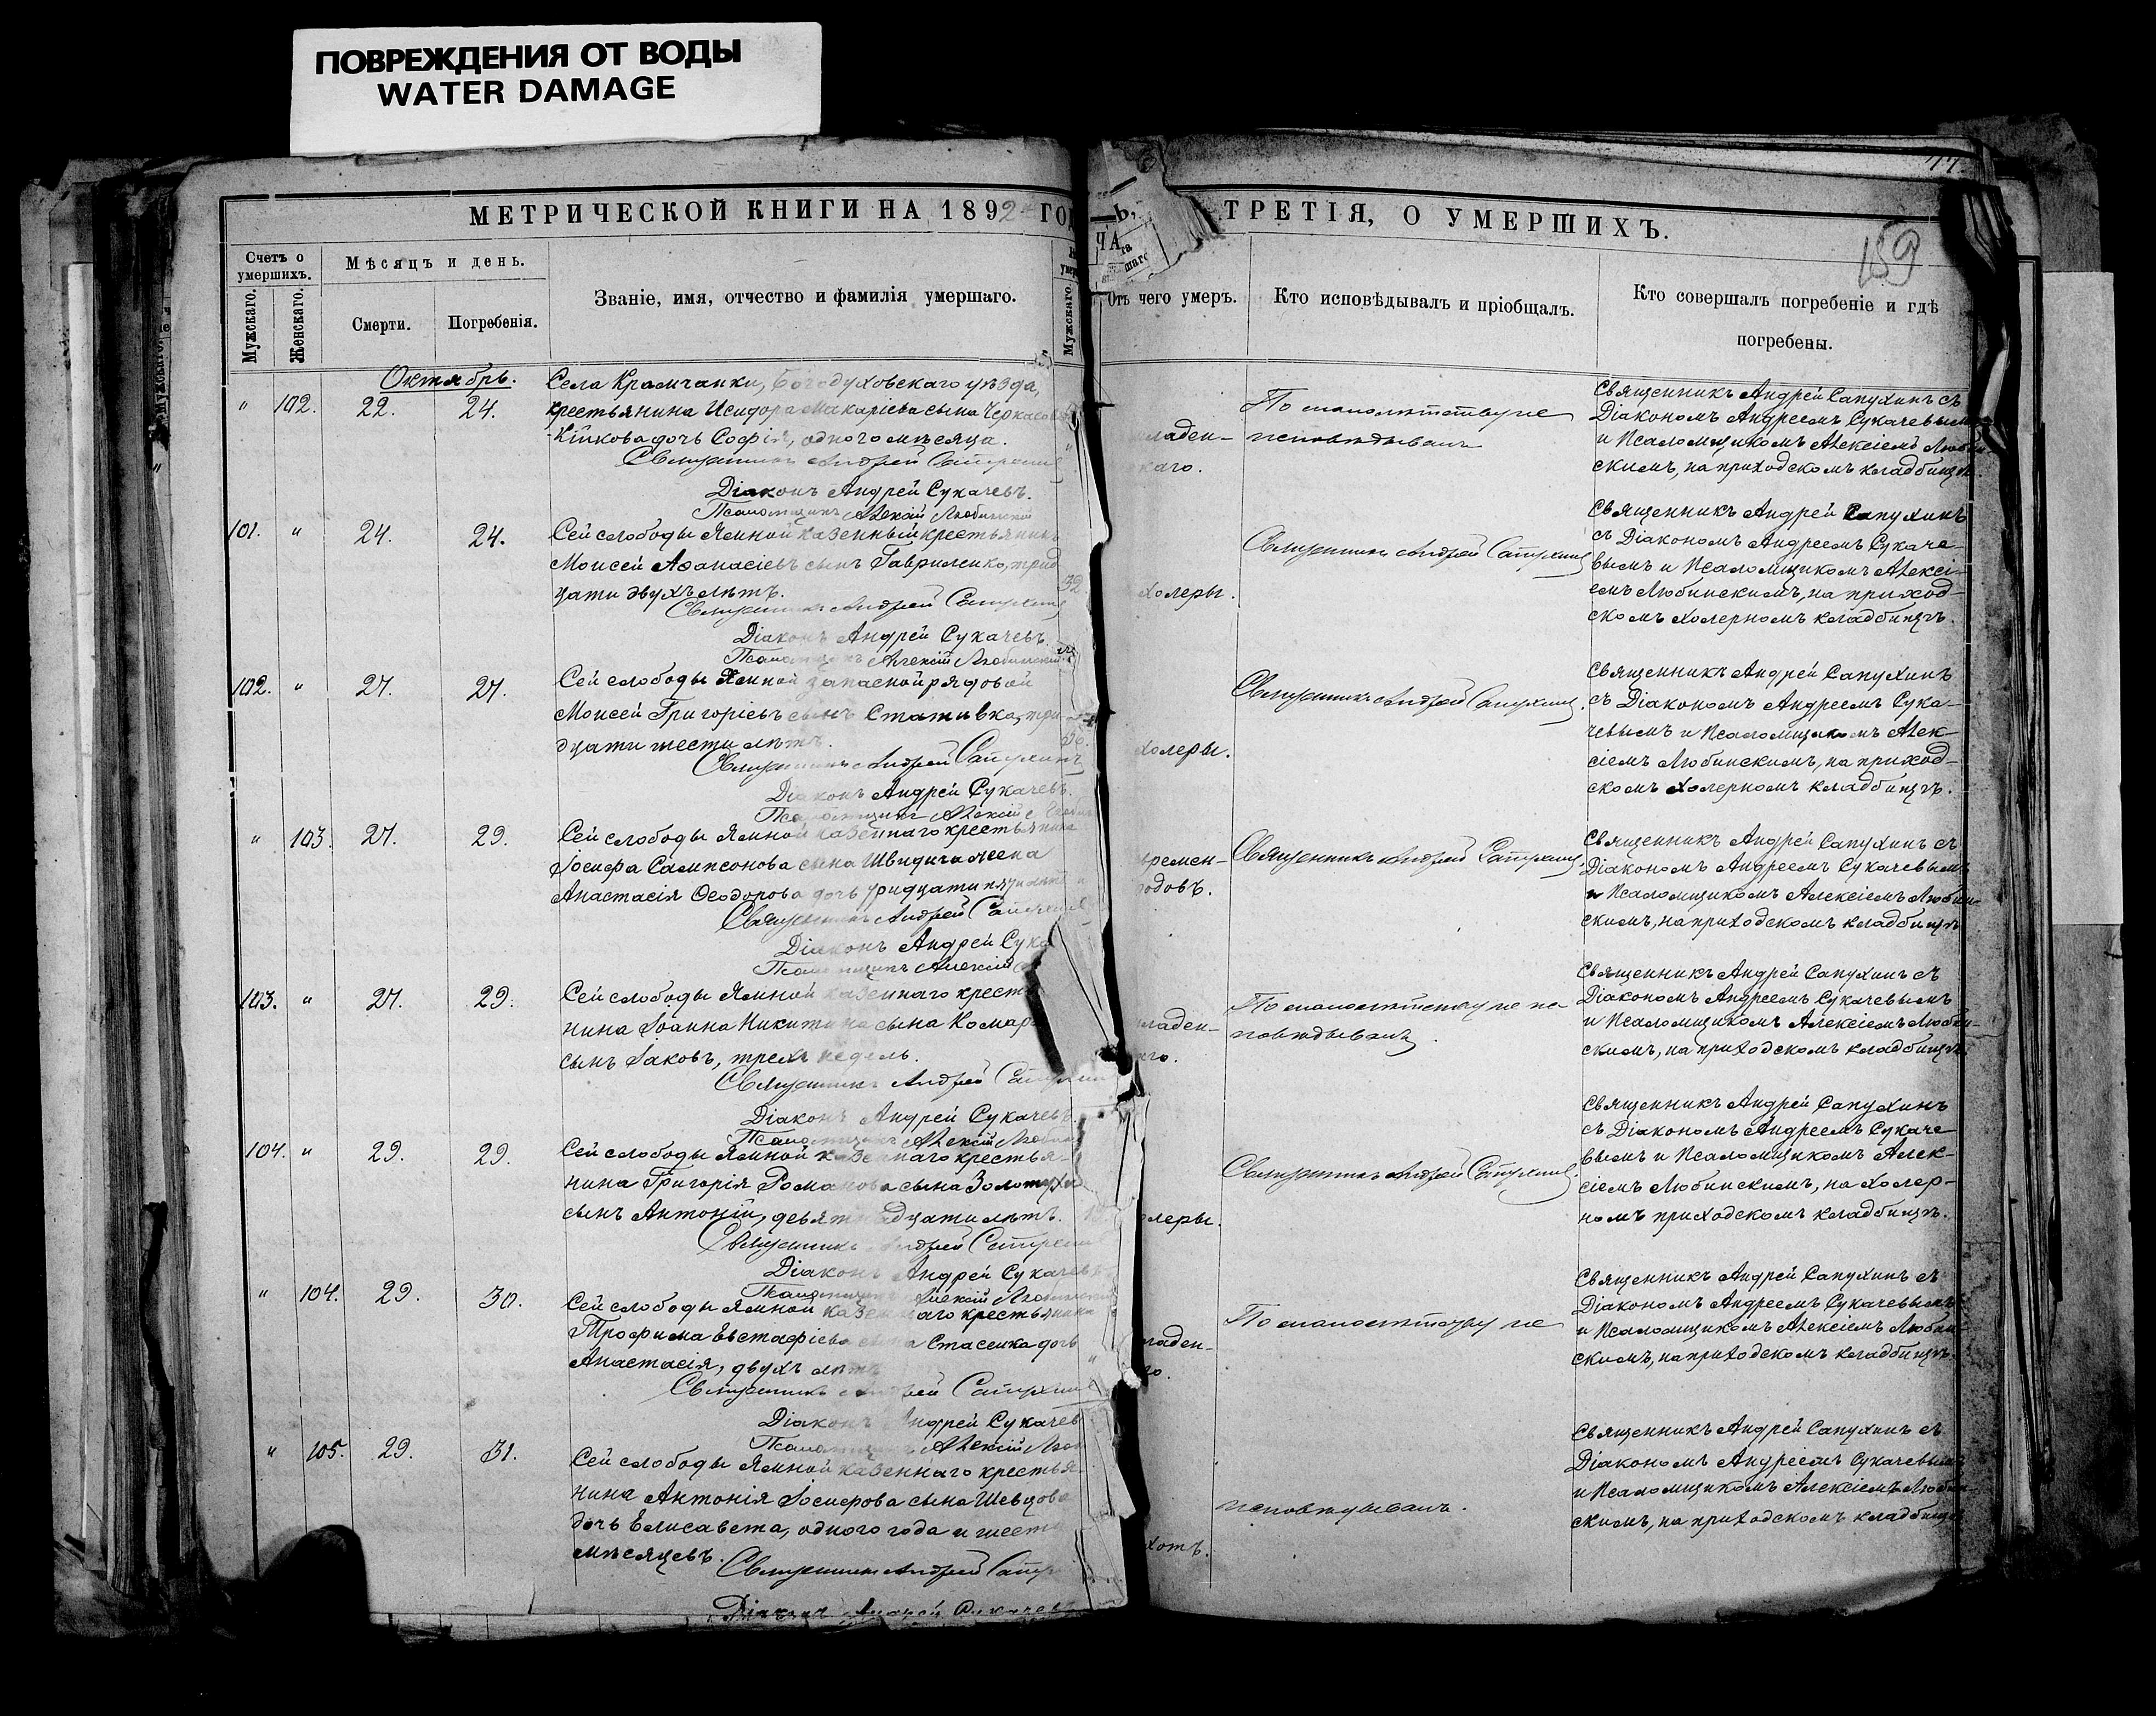 ПОВРЕЖДЕНИЯ ОТ ВОДЫ
WATER DAMAGE
МЕТРИЧЕСКОЙ КНИГИ НА 1892 ГО
Счетъ о умершихъ.
Мужскаго.
Женскаго.
Мѣсяцъ и день.
Смерти.
Погребенія.
Званіе, имя, отчество и фамилія умершаго.
Мужскаго
Октябрь.
" 102. 22. 24.
Села Крамчанки, Богодуховскаго уѣзда,
крестьянина Исидора Макаріева сына
дочь Софія, одного мѣсяца.
Священникъ Андрей Сапухинъ
Діаконъ Андрей Сукачевъ.
Псаломщикъ Алексій Любинскій
101. " 24. 24.
Сей слободы Ямной казенный крестьянинъ
Моисей Аѳанасіевъ сынъ Гавриленко, трид
цати двухъ лѣтъ. 32
Священникъ Андрей Сапухинъ
Діаконъ Андрей Сукачевъ.
Псаломщикъ Алексій Любинскій
102. " 27. 27.
Сей слободы Ямной запасной рядовой
Моисей Григоріевъ сынъ Стативка, три
дцати шести лѣтъ. 36.
Священникъ Андрей Сапухинъ
Діаконъ Андрей Сукачевъ.
Псаломщикъ Алексій
" 103. 27. 29.
Сей слободы Ямной казеннаго крестьянина
Іосифа Сампсонова сына Швидича жена
Анастасія Ѳеодорова дочь тридцати
Священникъ Андрей Сапухинъ
Діаконъ Андрей Сука
Псаломщикъ Алексій
103. " 27. 29.
Сей слободы Ямной казеннаго крест
нина Іоанна Никитина сына Комар
сынъ Іаковъ, трехъ недель.
Священникъ Андрей Сапухинъ
Діаконъ Андрей Сукачевъ.
Псаломщикъ Алексій Любин
104. " 29. 29.
Сей слободы Ямной казеннаго крестья-
нина Григорія Романова сына Золотух
сынъ Антоній, девятнадцати лѣтъ.
Священникъ Андрей Сапухинъ
Діаконъ Андрей Сукачевъ
Псаломщикъ Алексій Любинскій
" 104. 29. 30.
Сей слободы Ямной казеннаго крестьянина
Трофима Евстафіева сына Стасенка дочь
Анастасія, двухъ лѣтъ
Священникъ Андрей Сапухинъ
Діаконъ Андрей Сукачев
Псаломщикъ Алексій Люб
" 105. 29. 31.
Сей слободы Ямной казеннаго крестья-
нина Антонія Іосифова сына Шевцова
дочь Елисавета, одного года и шести
мѣсяцевъ.
Священникъ Андрей Сапух
Діаконъ Андрей Сукачевъ
ТРЕТІЯ, О УМЕРШИХЪ.
159
Отъ чего умеръ.
Кто исповѣдывалъ и пріобщалъ.
Кто совершалъ погребеніе и гдѣ
погребены.
ладен-
каго.
По малолѣтству не
исповѣдывалъ
Священникъ Андрей Сапухинъ съ
Діакономъ Андреемъ Сукачевымъ
и Псаломщикомъ Алексіемъ Любин-
скимъ, на приходскомъ кладбищѣ.
холеры.
Священникъ Андрей Сапухинъ
Священникъ Андрей Сапухинъ
съ Діакономъ Андреемъ Сукаче-
вымъ и Псаломщикомъ Алексі-
емъ Любинскимъ, на приход-
скомъ холерномъ кладбищѣ.
холеры.
Священникъ Андрей Сапухинъ.
Священникъ Андрей Сапухинъ
съ Діакономъ Андреемъ Сука-
чевымъ и Псаломщикомъ Алек-
сіемъ Любинскимъ, на приход-
скомъ холерномъ кладбищѣ.
времен-
родовъ.
Священникъ Андрей Сапухинъ
Священникъ Андрей Сапухинъ съ
Діакономъ Андреемъ Сукачевымъ
и Псаломщикомъ Алексіемъ Любин-
скимъ, на приходскомъ кладбищѣ
ладен-
аго.
По малолѣтству не ис
повѣдывалъ.
Священникъ Андрей Сапухинъ съ
Діакономъ Андреемъ Сукачевымъ
и Псаломщикомъ Алексіемъ Любин-
скимъ, на приходскомъ кладбищѣ.
олеры.
Священникъ Андрей Сапухинъ.
Священникъ Андрей Сапухинъ
съ Діакономъ Андреемъ Сукаче
вымъ и Псаломщикомъ Алек-
сіемъ Любинскимъ, на холер-
номъ приходскомъ кладбищѣ.
ладен-
го.
По малолѣтству не
Священникъ Андрей Сапухинъ съ
Діакономъ Андреемъ Сукачевымъ
и Псаломщикомъ Алексіемъ Любин-
скимъ, на приходскомъ кладбищѣ.
хотъ.
исповѣдывалъ.
Священникъ Андрей Сапухинъ съ
Діакономъ Андреемъ Сукачевымъ
и Псаломщикомъ Алексіемъ Любин-
скимъ, на приходскомъ кладбищѣ